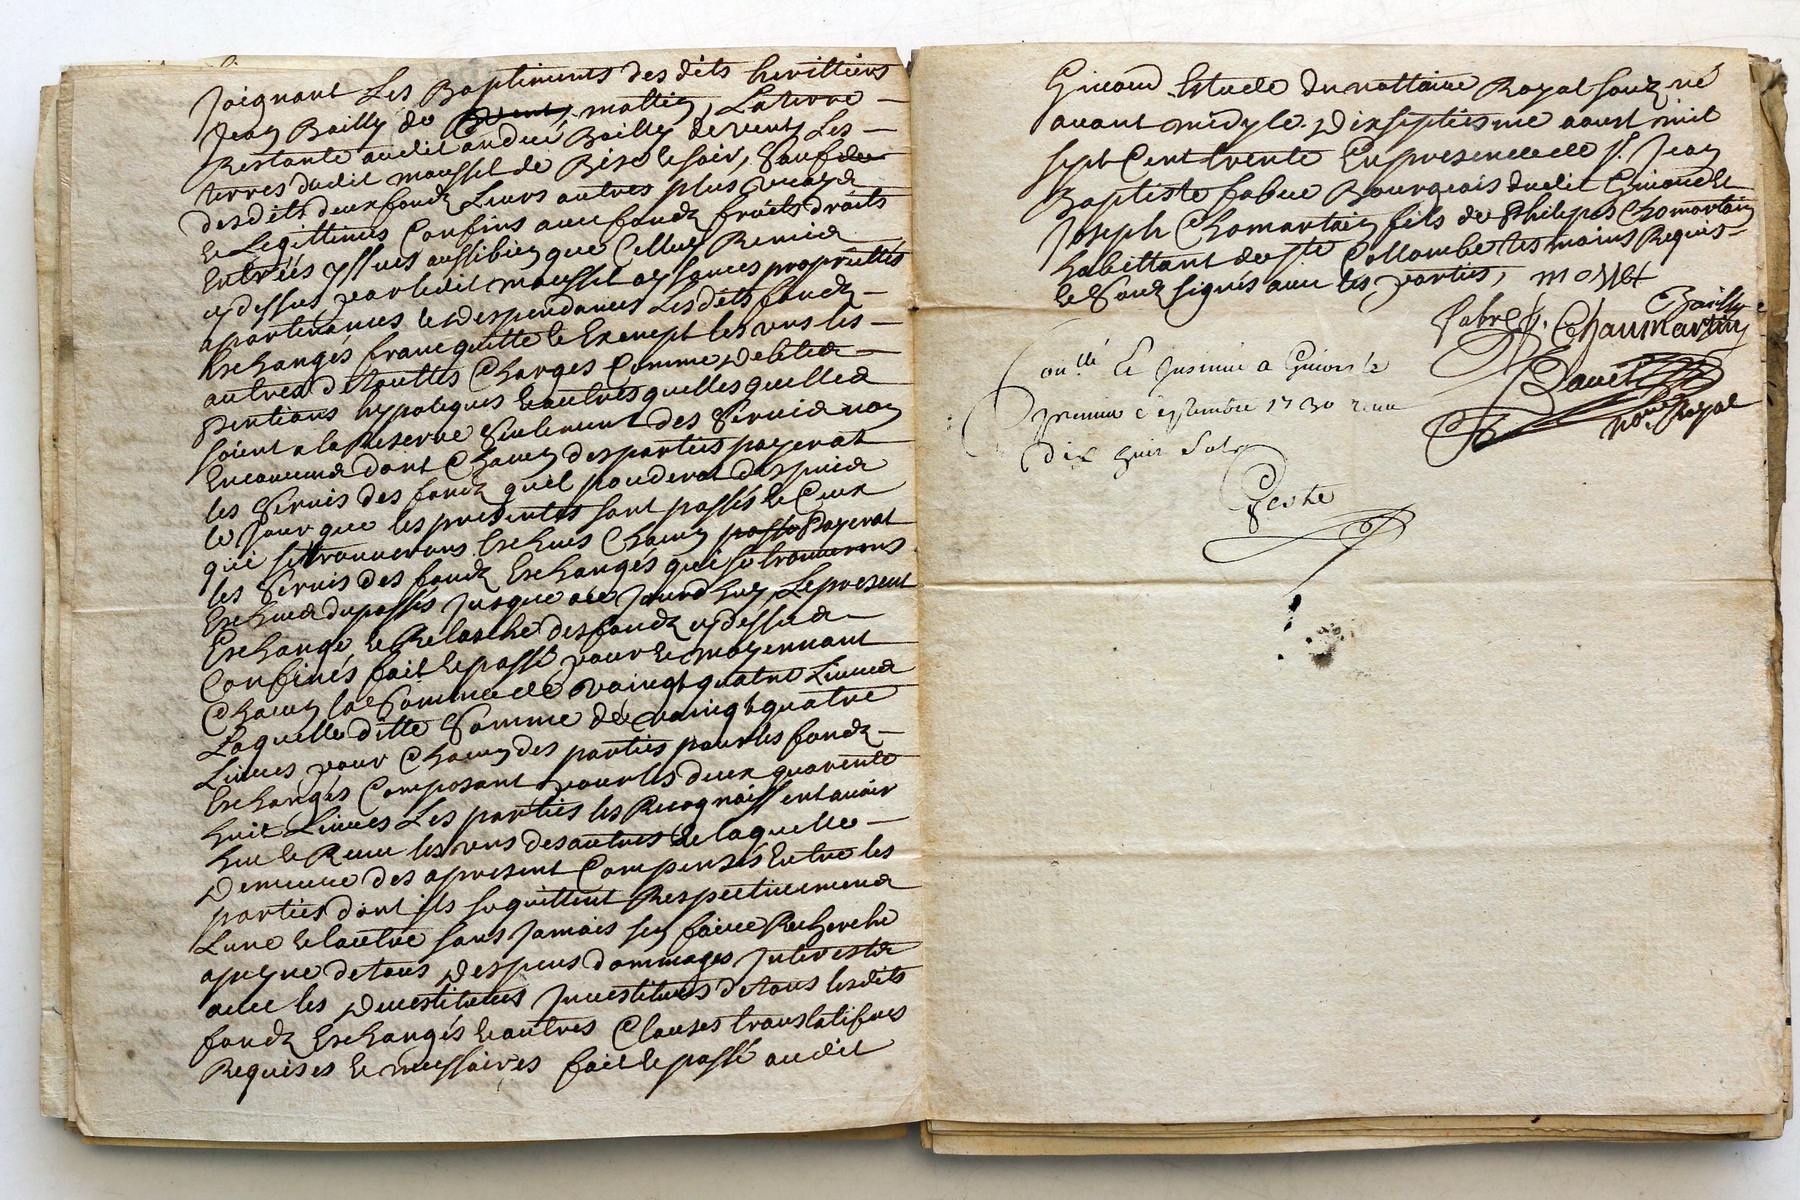 Joignant Les Baptiments des dits herittiers
Jean Bailly de mattin, La terre
Restante audit andré Bailly de vent, Les
terres dudit mousset de Bize le soir, Sauf
desdits deux fondz Leurs autres plus vrayes
et Legittimes Confins avec fondz fruits droits
Entrées yssues aussi bien que Celluy Remis
cy dessus par ledit mousset aysances proprietés
apartenances et despendances Les dits fondz
Eschangés franc quitte et Exempt les uns les
autres de touttes Charges Comme debtes
Pentions hypoteques et autres quelles quelles
soient a la Reserve Seulement des Servis non
Encourus dont Chacun des parties payerat
les Servis des fondz quil pocederat despuis
le Jour que les presentes sont passés et Ceux
qui se trouverons Escheus Chacun passé Payerat
les Servis des fondz Eschangés qui se trouverons
Escheus du passés Jusques a ce Jourdhuy, Le present
Eschange, et Relasche des fondz cy dessus
Confinés fait et passé pour et moyennant
Chacun la Somme de vaingt quatre Livres
Laquelle ditte Somme de vaingt quatre
Livres pour Chacun des parties pour les fondz
Eschangés Composant pour les deux quarente
huit Livres Les parties les Recognoissent avoir
heu et Receu les uns des autres et laquelle
Demeure des apresent Compensés Entre les
parties dont ils se quittent Respectivement
Lune et lautre sans Jamais sen faire Recherche
a peyne de tous Despens dommages Interests
avec les Devestitures Investitures de tous lesdits
fondz Eschangés et autres Clauses translatifves
Requises et nessaires fait et passé audit
Givord Estude du nottaire Royal souz né
avant midy le Dixseptiesme aoust mil
sept Cent trente En presence de Sr. Jean
Baptiste fabre Bourgeois dudit Givord et
Joseph Chomartin fils de Philipes Chomartin
habittant de Ste Collombe tesmoins Requis
et Souz signés avec les parties, mosset
Bailly
fabre J. Chaumartin
Bauet
nore. Royal
Conllé Et Insinué a Givors le
premier septembre 1730 receu
dix huit Sols